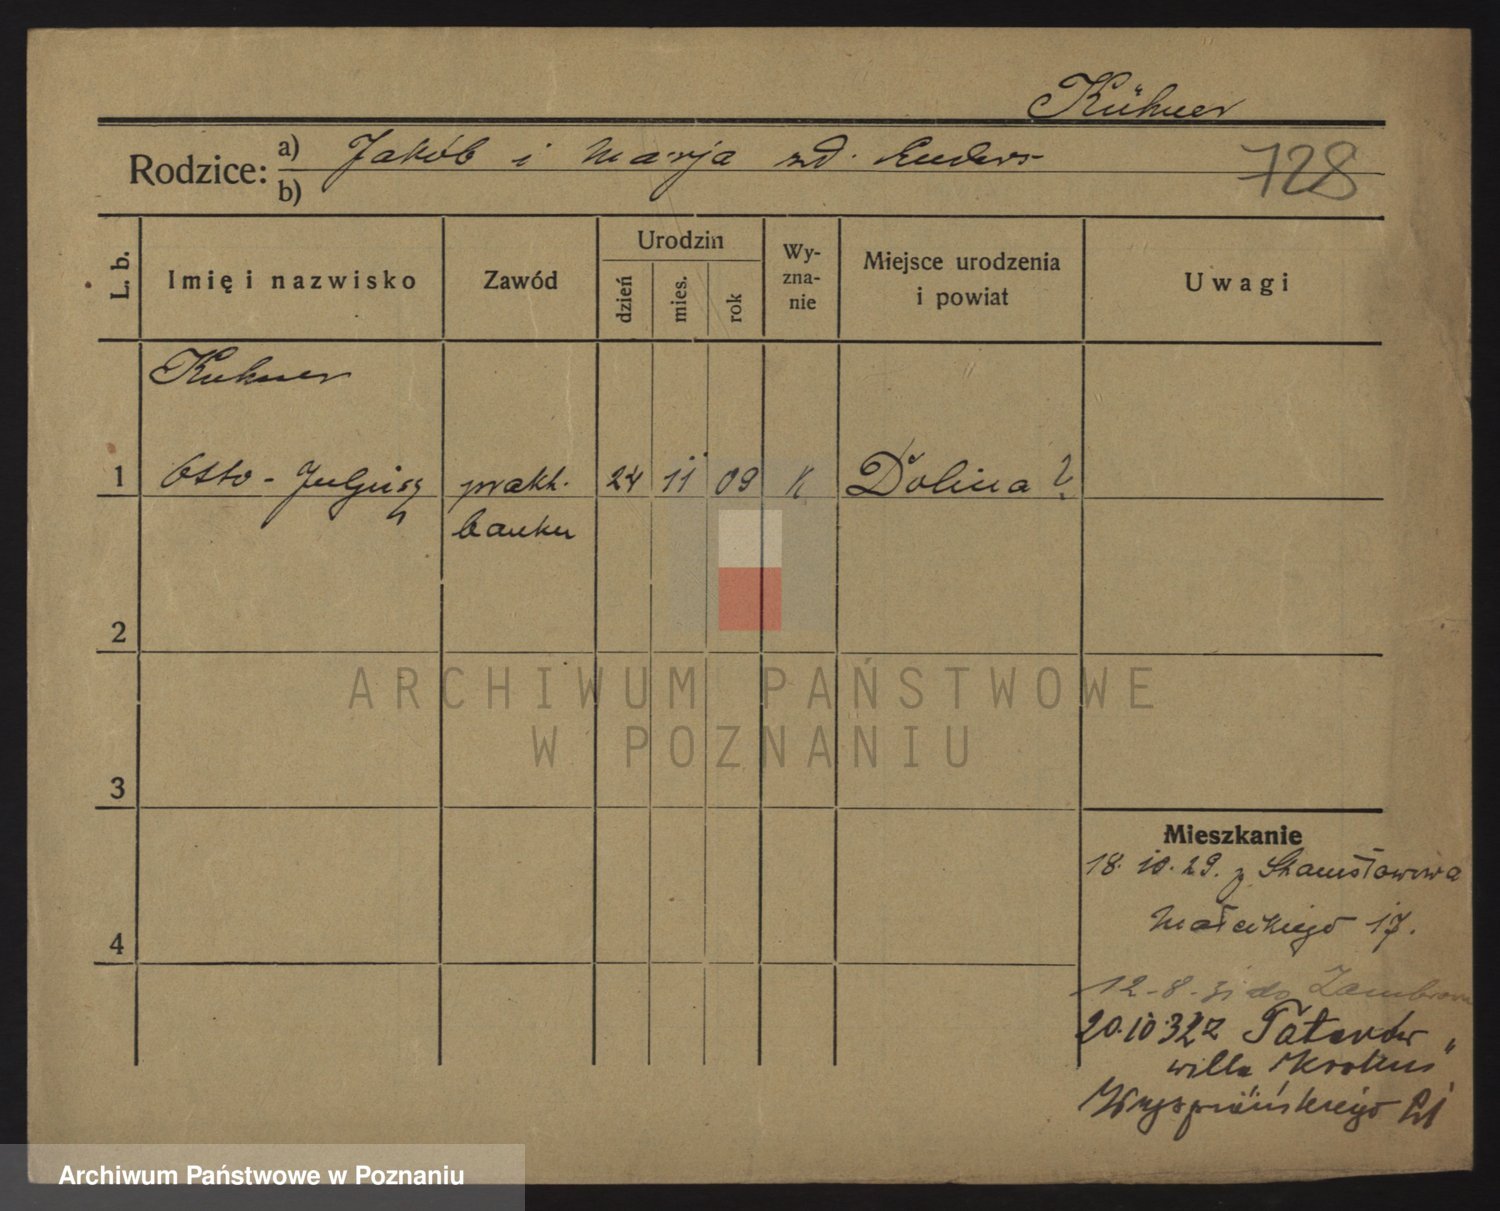 Kühner
Rodzice: a) Jakób i Marja zd. Enders
b)
728
L. b.
Imię i nazwisko
Zawód
Urodzin
dzień
mies.
rok
Wy-
zna-
nie
Miejsce urodzenia
i powiat
Uwagi
Kuhner
1 Otto - Juljusz prakt. 24 11 09 K Dolina ?
banku
2
3
4
ARCHIWUM PAŃSTWOWE
W POZNANIU
Mieszkanie
18. 10. 29. z Stanisławowa
Małeckiego 17.
12-8-31 do Zambrowa
20.10.32 z Tatarów
willa "Krokus"
Wyspiańskiego 21
Archiwum Państwowe w Poznaniu